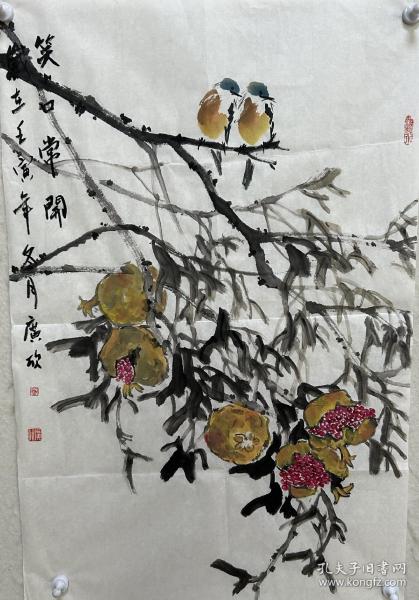 笑口常開
歲在壬寅年冬月廣欣
孔夫子旧书网
www.kongfz.com